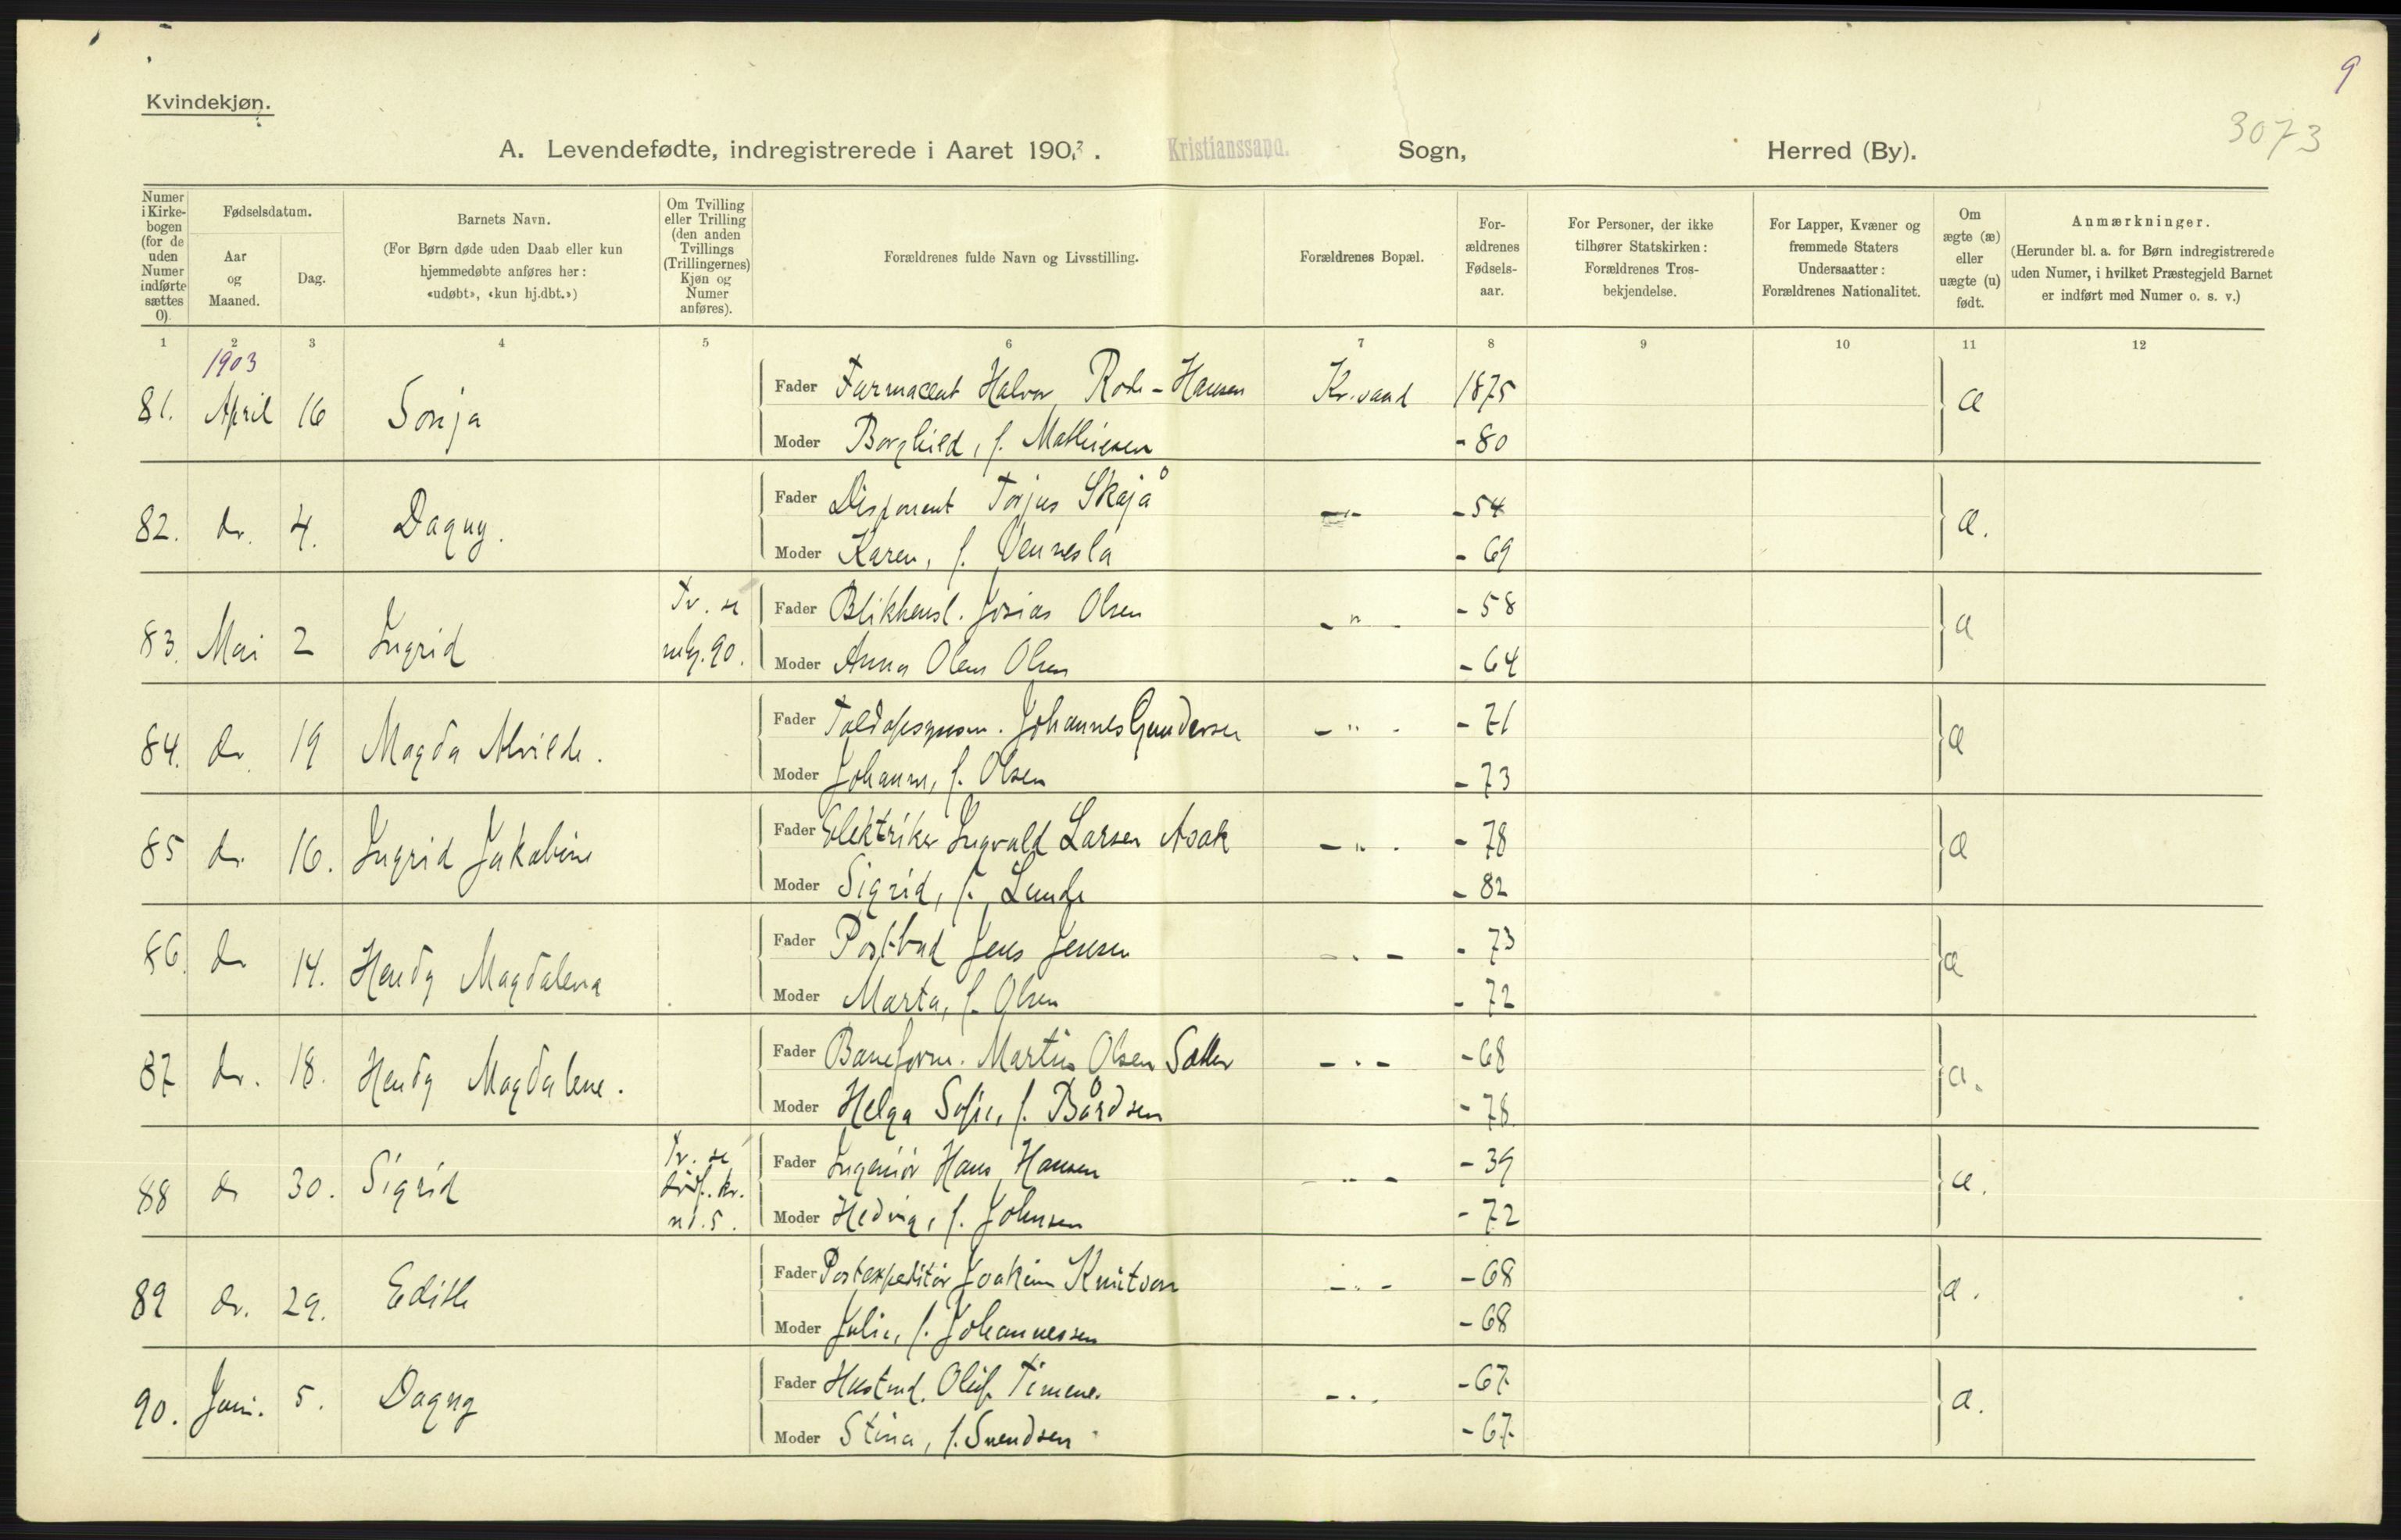 9
Kvindekjøn.
3073
A. Levendefødte, indregistrerede i Aaret 1903. Kristianssand. Sogn, Herred (By).
Numer i Kirke-bogen (for de uden Numer indførte sættes 0).
Fødselsdatum.
Aar og Maaned.
Dag.
Barnets Navn.
(For Børn døde uden Daab eller kun
hjemmedøbte anføres her:
«udøbt», «kun hj.dbt.»)
Om Tvilling
eller Trilling
(den anden
Tvillings
(Trillingernes)
Kjøn og
Numer
anføres).
Forældrenes fulde Navn og Livsstilling.
Forældrenes Bopæl.
For-
ældrenes
Fødsels-
aar.
For Personer, der ikke
tilhører Statskirken:
Forældrenes Tros-
bekjendelse.
For Lapper, Kvæner og
fremmede Staters
Undersaatter:
Forældrenes Nationalitet.
Om
ægte (æ)
eller
uægte (u)
født.
Anmærkninger.
(Herunder bl. a. for Børn indregistrerede
uden Numer, i hvilket Præstegjeld Barnet
er indført med Numer o. s. v.)
1 2 3 4 5 6 7 8 9 10 11 12
1903
81. April 16 Sonja Fader Farmaceut Halvor Rode-Hansen Kr.sand 1875 æ
Moder Borghild, f. Mathiesen - 80
82. do. 4. Dagny. Fader Disponent Torjus Skajå -"- - 54 æ.
Moder Karen, f. Vennesla - 69
83. Mai 2 Ingrid Tv. se mkj. 90. Fader Blikkensl. Josias Olsen -"- - 58 æ
Moder Anna Olsen - 64
84. do. 19 Magda Alvilde. Fader Johannes Gundersen -"- - 71 æ
Moder Johanne, f. Olsen - 73
85 do. 16. Ingrid Jakobine Fader Elektriker Ingvald Larsen Asak -"- - 78 æ
Moder Sigrid, f. Lunde - 82
86. do 14. Hendy Magdalena Fader Postbud Jens Jensen -"- - 73 æ
Moder Marta, f. Olsen - 72
87 do. 18. Hendy Magdalene. Fader Baneform. Martin Olsen -"- - 68 æ.
Moder Helga Sofie, f. Bårdsen - 78
88 do 30. Sigrid Tv. se dödf. kv. no. 5. Fader Ingeniör Hans Hansen -"- - 39 æ.
Moder Hedvig, f. Johnsen - 72
89 do. 29. Edith Fader Postexpeditör Joakim Knutson -"- - 68 æ.
Moder Julie, f. Johannessen - 68
90. Juni. 5. Dagny Fader Oluf -"- - 67 æ.
Moder Stina, f. Svendsen - 67